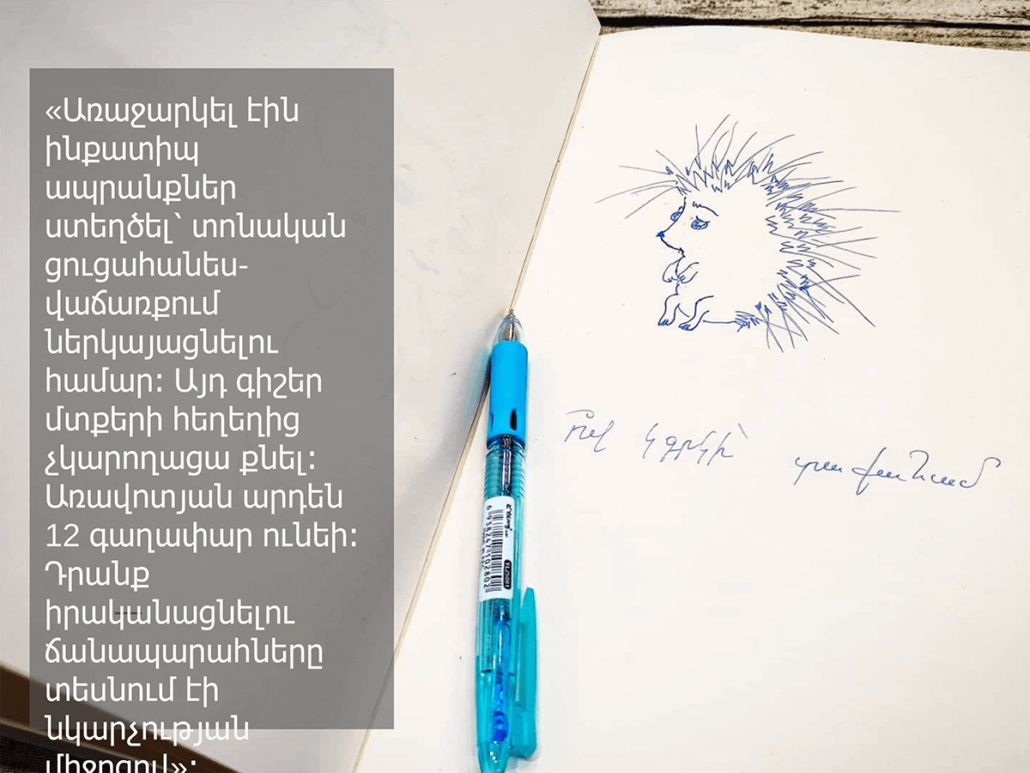 «Առաջարկել էին
ինքատիպ
ապրանքներ
ստեղծել՝ տոնական
ցուցահանես-
վաճառքում
ներկայացնելու
համար: Այդ գիշեր
մտքերի հեղեղից
չկարողացա քնել:
Առավոտյան արդեն
12 գաղափար ունեի:
Դրանք
իրականացնելու
ճանապարհները
տեսնում էի
նկարչության
միջոցով»: